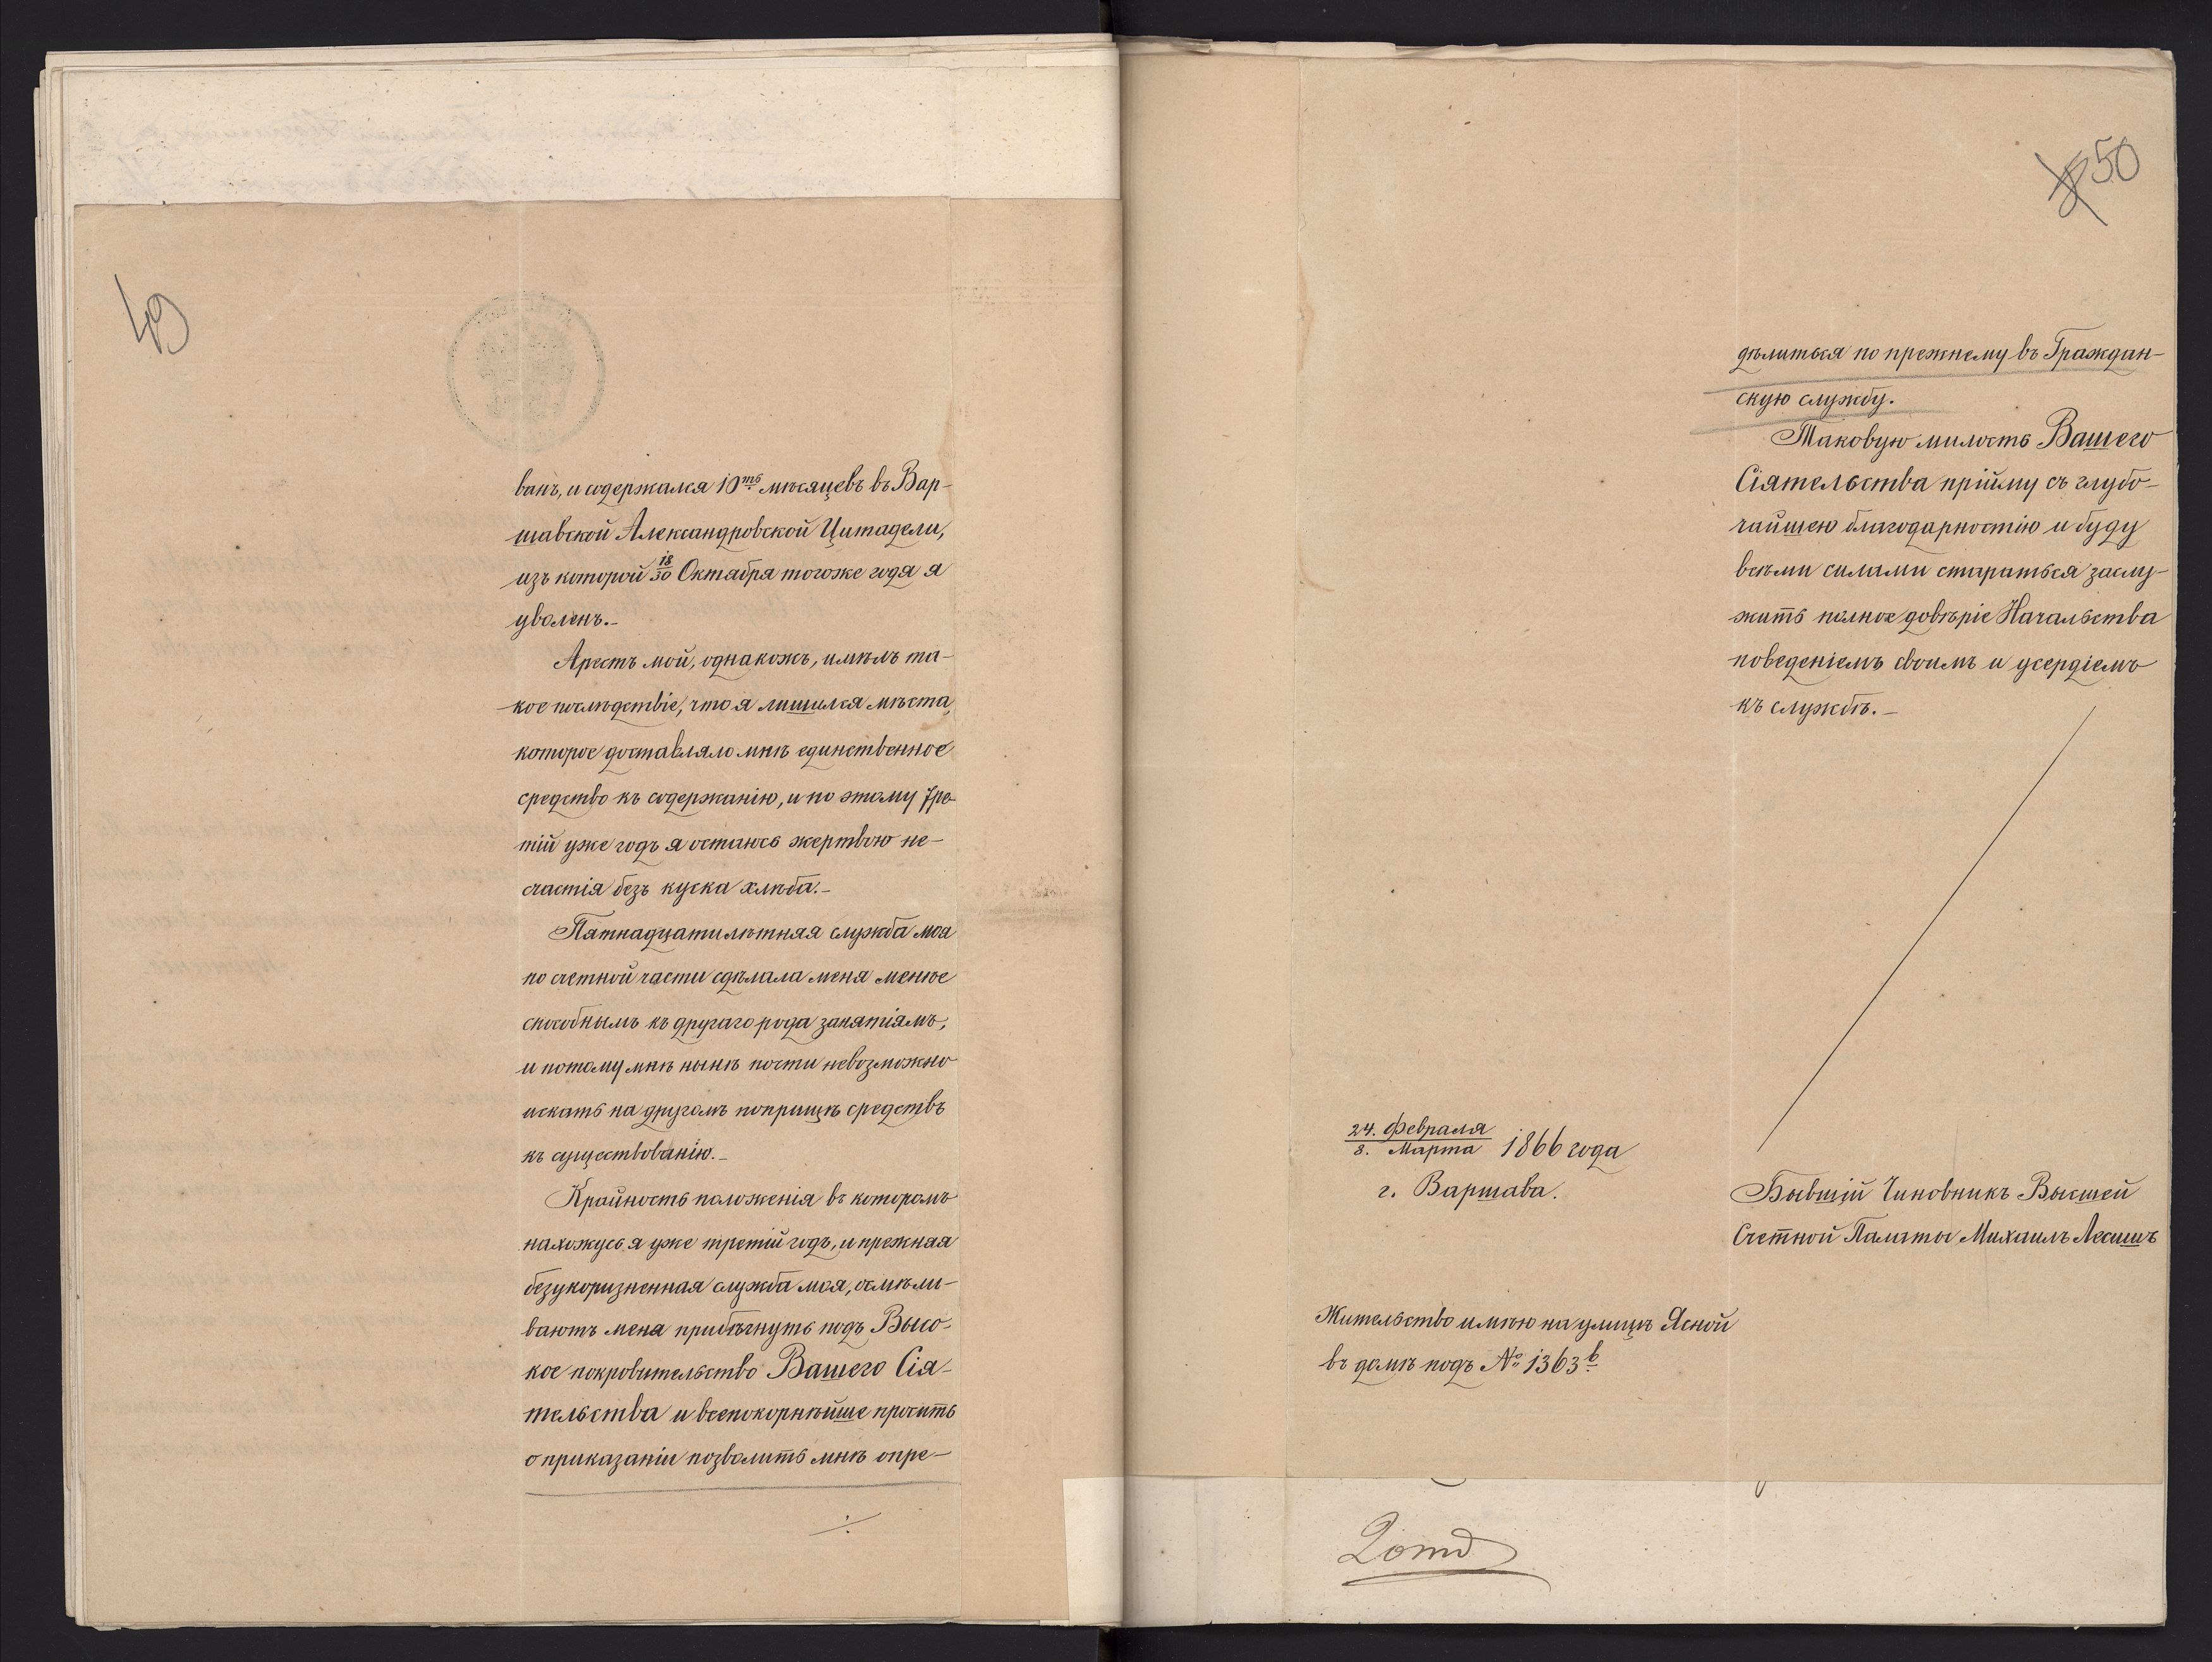 49
ванъ, и содержался 10ть мѣсяцевъ въ Вар-
шавской Александровской Цитадели,
изъ которой 18/30 Октября тогоже года я
уволенъ.-
Арестъ мой, однакожъ, имѣлъ та-
кое послѣдствіе, что я лишился мѣста,
которое доставляло мнѣ единственное
средство къ содержанію, и по этому Тре-
тій уже годъ я остаюсь жертвою не-
счастія безъ куска хлѣба.-
Пятнадцатилѣтняя служба моя
по счетной части сдѣлала меня менѣе
способнымъ къ другаго рода занятіямъ,
и потому мнѣ нынѣ почти невозможно
искать на другомъ поприщѣ средствъ
къ существованію.-
Крайность положенія въ которомъ
нахожусь я уже третій годъ, и прежняя
безукоризненная служба моя, осмѣли-
ваютъ меня прибѣгнуть подъ Высо-
кое покровительство Вашего Сія-
тельства и всепокорнѣйше просить
о приказаніи позволить мнѣ опре-
50
дѣлиться по прежнему въ Граждан-
скую службу.
Таковую милость Вашего
Сіятельства прійму съ глубо-
чайшею благодарностію и буду
всѣми силами стараться заслу-
жить полное довѣріе Начальства
поведеніемъ своимъ и усердіемъ
къ службѣ.-
24. Февраля / 8. Марта 1866 года
г. Варшава.
Бывшій Чиновникъ Высшей
Счетной Палаты Михаилъ Лесишъ
Жительство имѣю на улицѣ Ясной
въ домѣ подъ № 1363 b